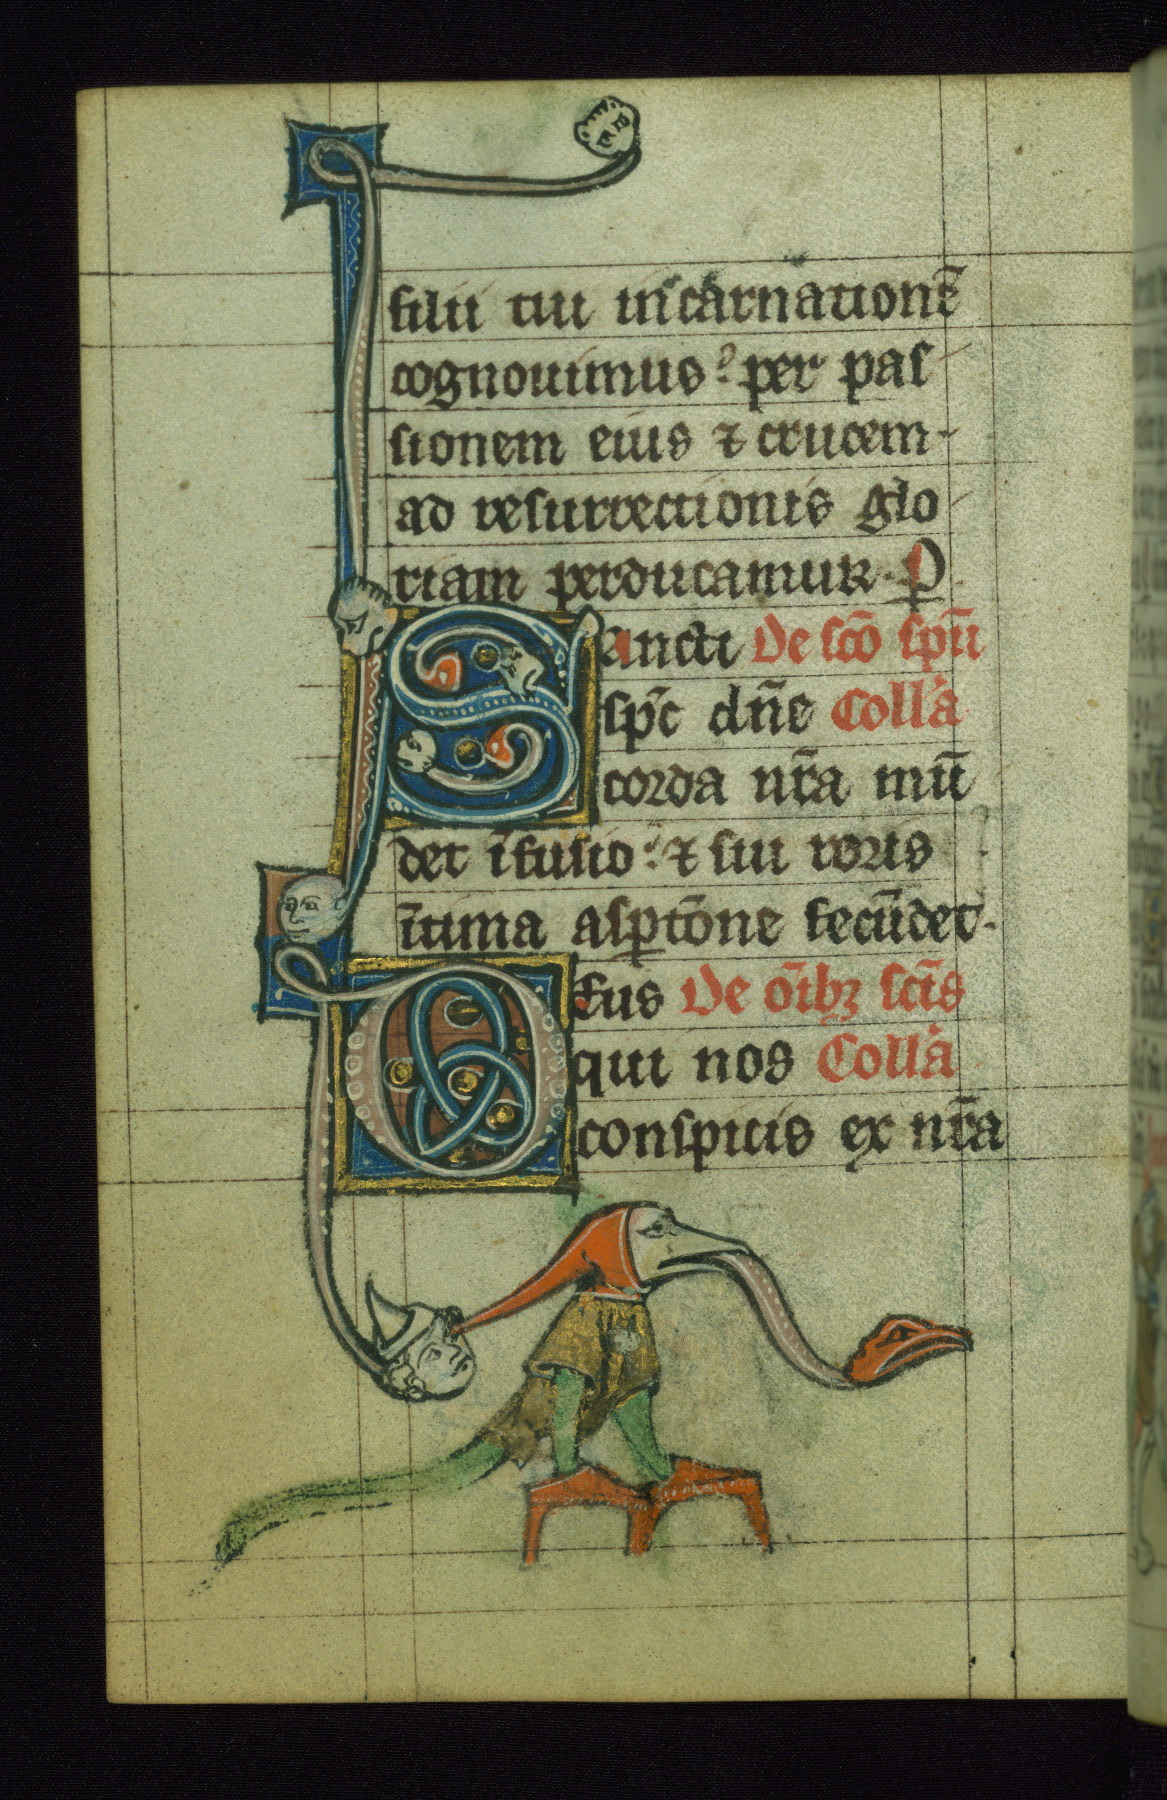 filii tui incarnationē
cognouimus: per pas
sionem eius ⁊ crucem
ad resurrectionis glo
riam perducamur. P
Sancti De sc̄o sp̄u
sp̄c dn̄e Coll'a
corda nr̄a mū
det īfusio: ⁊ sui roris
ītima asp̄tōne fecūdet.
Deus De om̄ibꝫ sc̄is
qui nos Coll'a
conspicis ex nr̄a